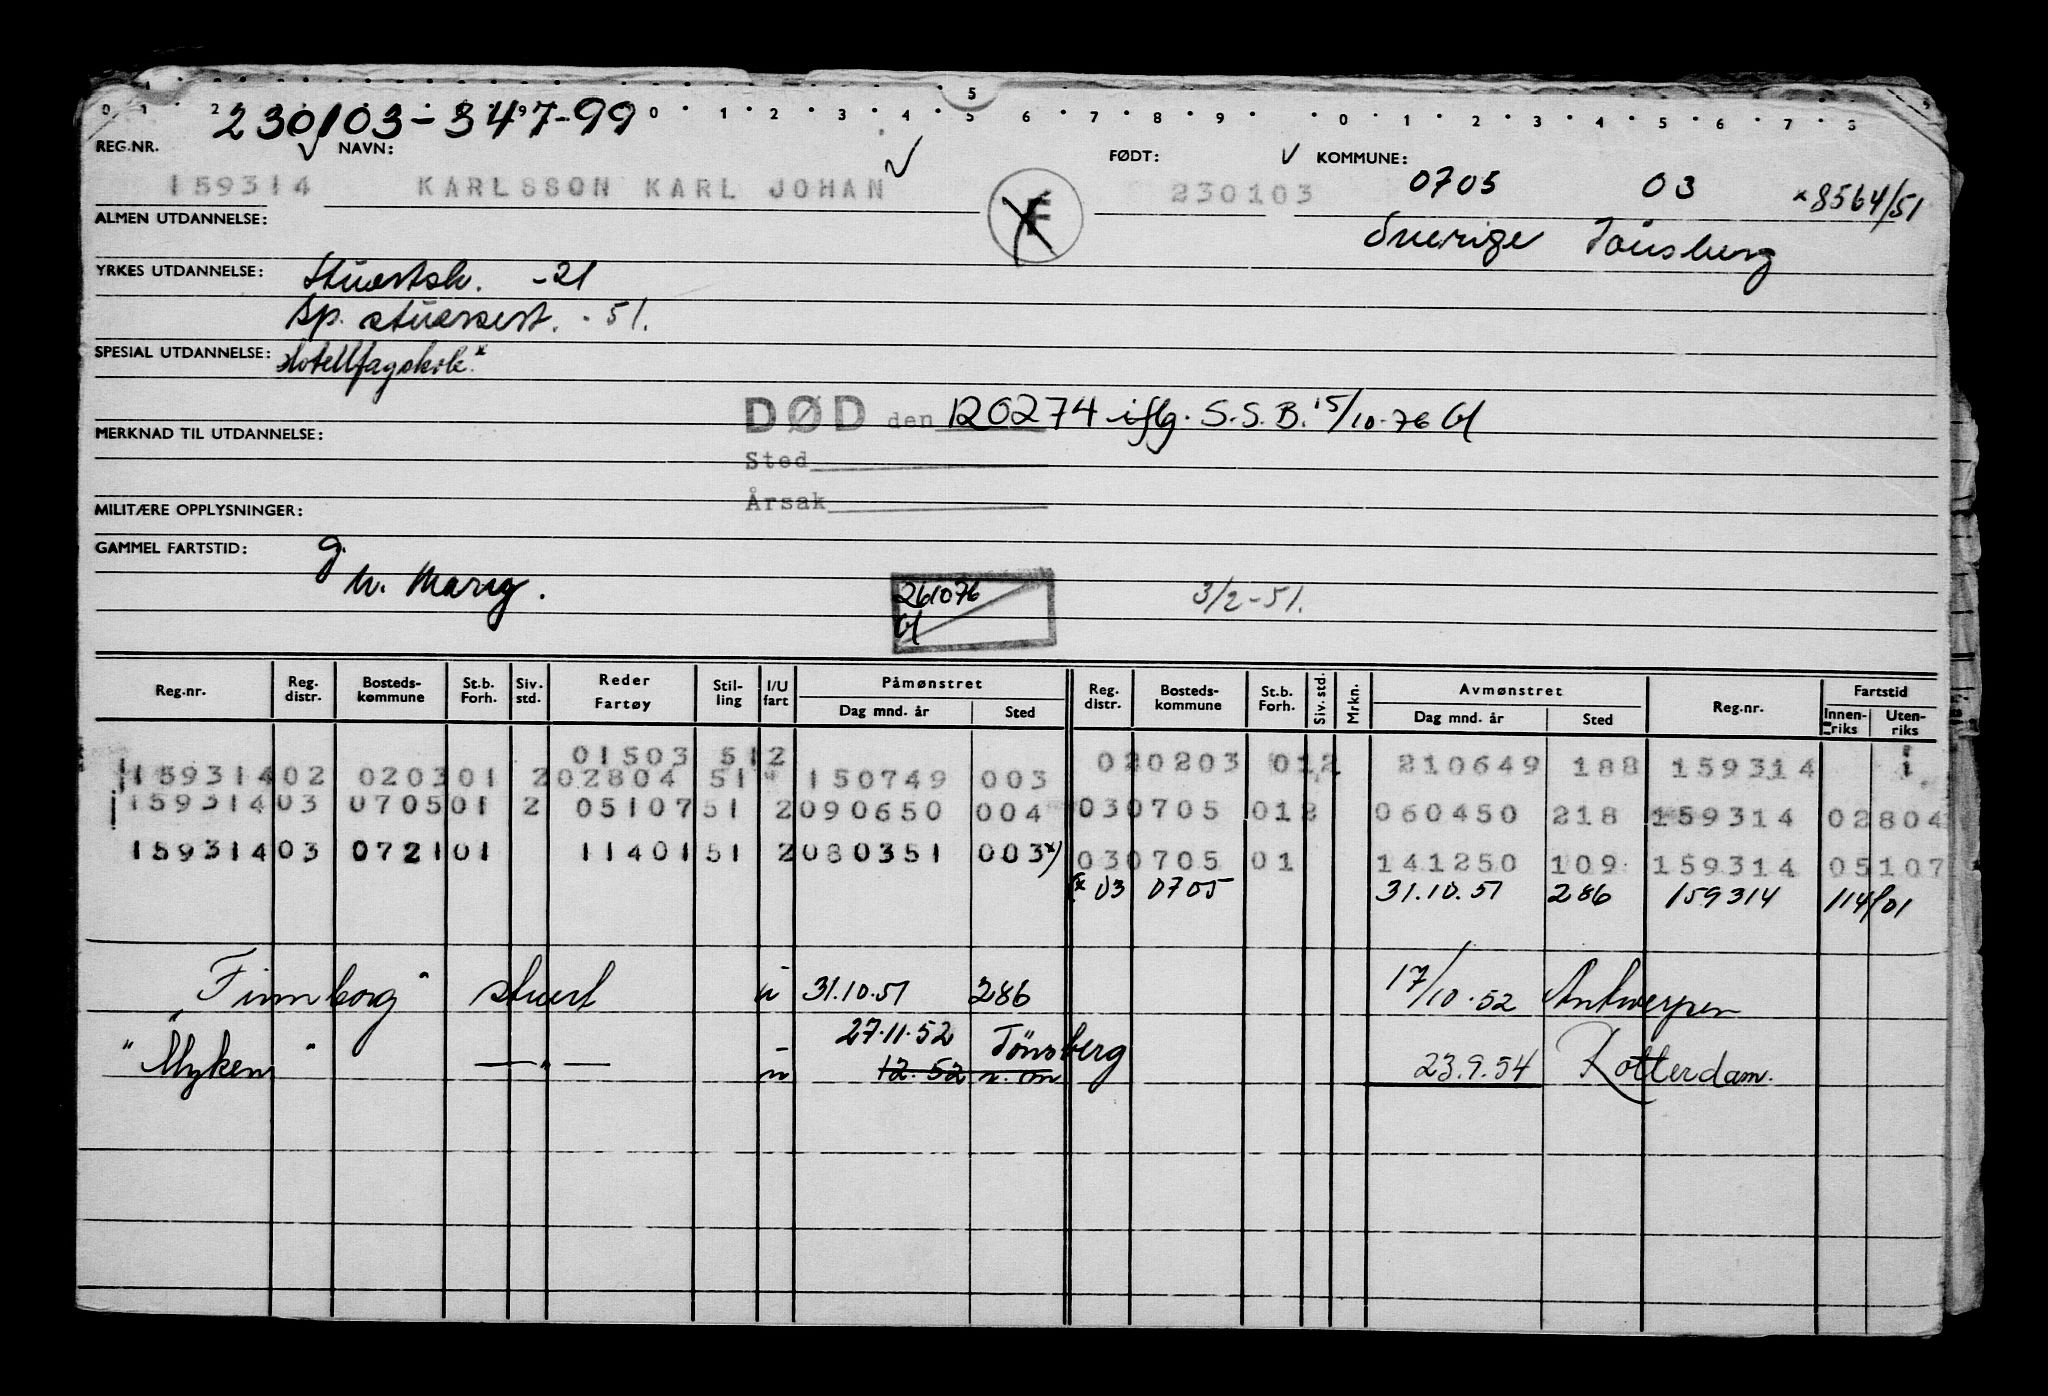 0 1 2 9 0 1 2 3 4 5 6 7 8 9 0 1 2 3 4 5 6 7 8
5
230103-347-99
REG.NR. NAVN: FØDT: KOMMUNE:
159314 KARLSSON KARL JOHAN 230103 0705 03 *8564/51
ALMEN UTDANNELSE: Sverige Tönsberg
YRKES UTDANNELSE: Stuertsk. -21
Bp. stuerert. -51.
SPESIAL UTDANNELSE: Hotellfagskole*
DØD den 120274 iflg. S.S.B. 15/10-76 Gl
MERKNAD TIL UTDANNELSE:
Sted
Årsak
MILITÆRE OPPLYSNINGER:
GAMMEL FARTSTID: g.
261076
Gl
3/2-51.
Reg.nr. Reg. distr. Bosteds- kommune St.b. Forh. Siv. std. Reder Fartøy Stil- ling I/U fart Påmønstret Dag mnd. år Sted Reg. distr. Bosteds- kommune St.b. Forh. Siv. std. Mrkn. Avmønstret Dag mnd. år Sted Reg.nr. Fartstid Innen- riks Uten- riks
01503 512 020203 012 210649 188 159314
159314 02 0203 01 2 02804 51 150749 003
159314 03 0705 01 2 05107 51 2 090650 004 03 0705 01 2 060450 218 159314 02804
159314 03 0721 01 11401 51 2 080351 003*) 03 0705 01 141250 109 159314 05107
(* 03 0705 31.10.51 286 159314 114/01
"Finnborg" stuert u 31.10.51 286 17/10.52 Antwerpen
27.11.52 Tönsberg
"Myken" —"— u 12.52 n. on 23.9.54 Rotterdam.